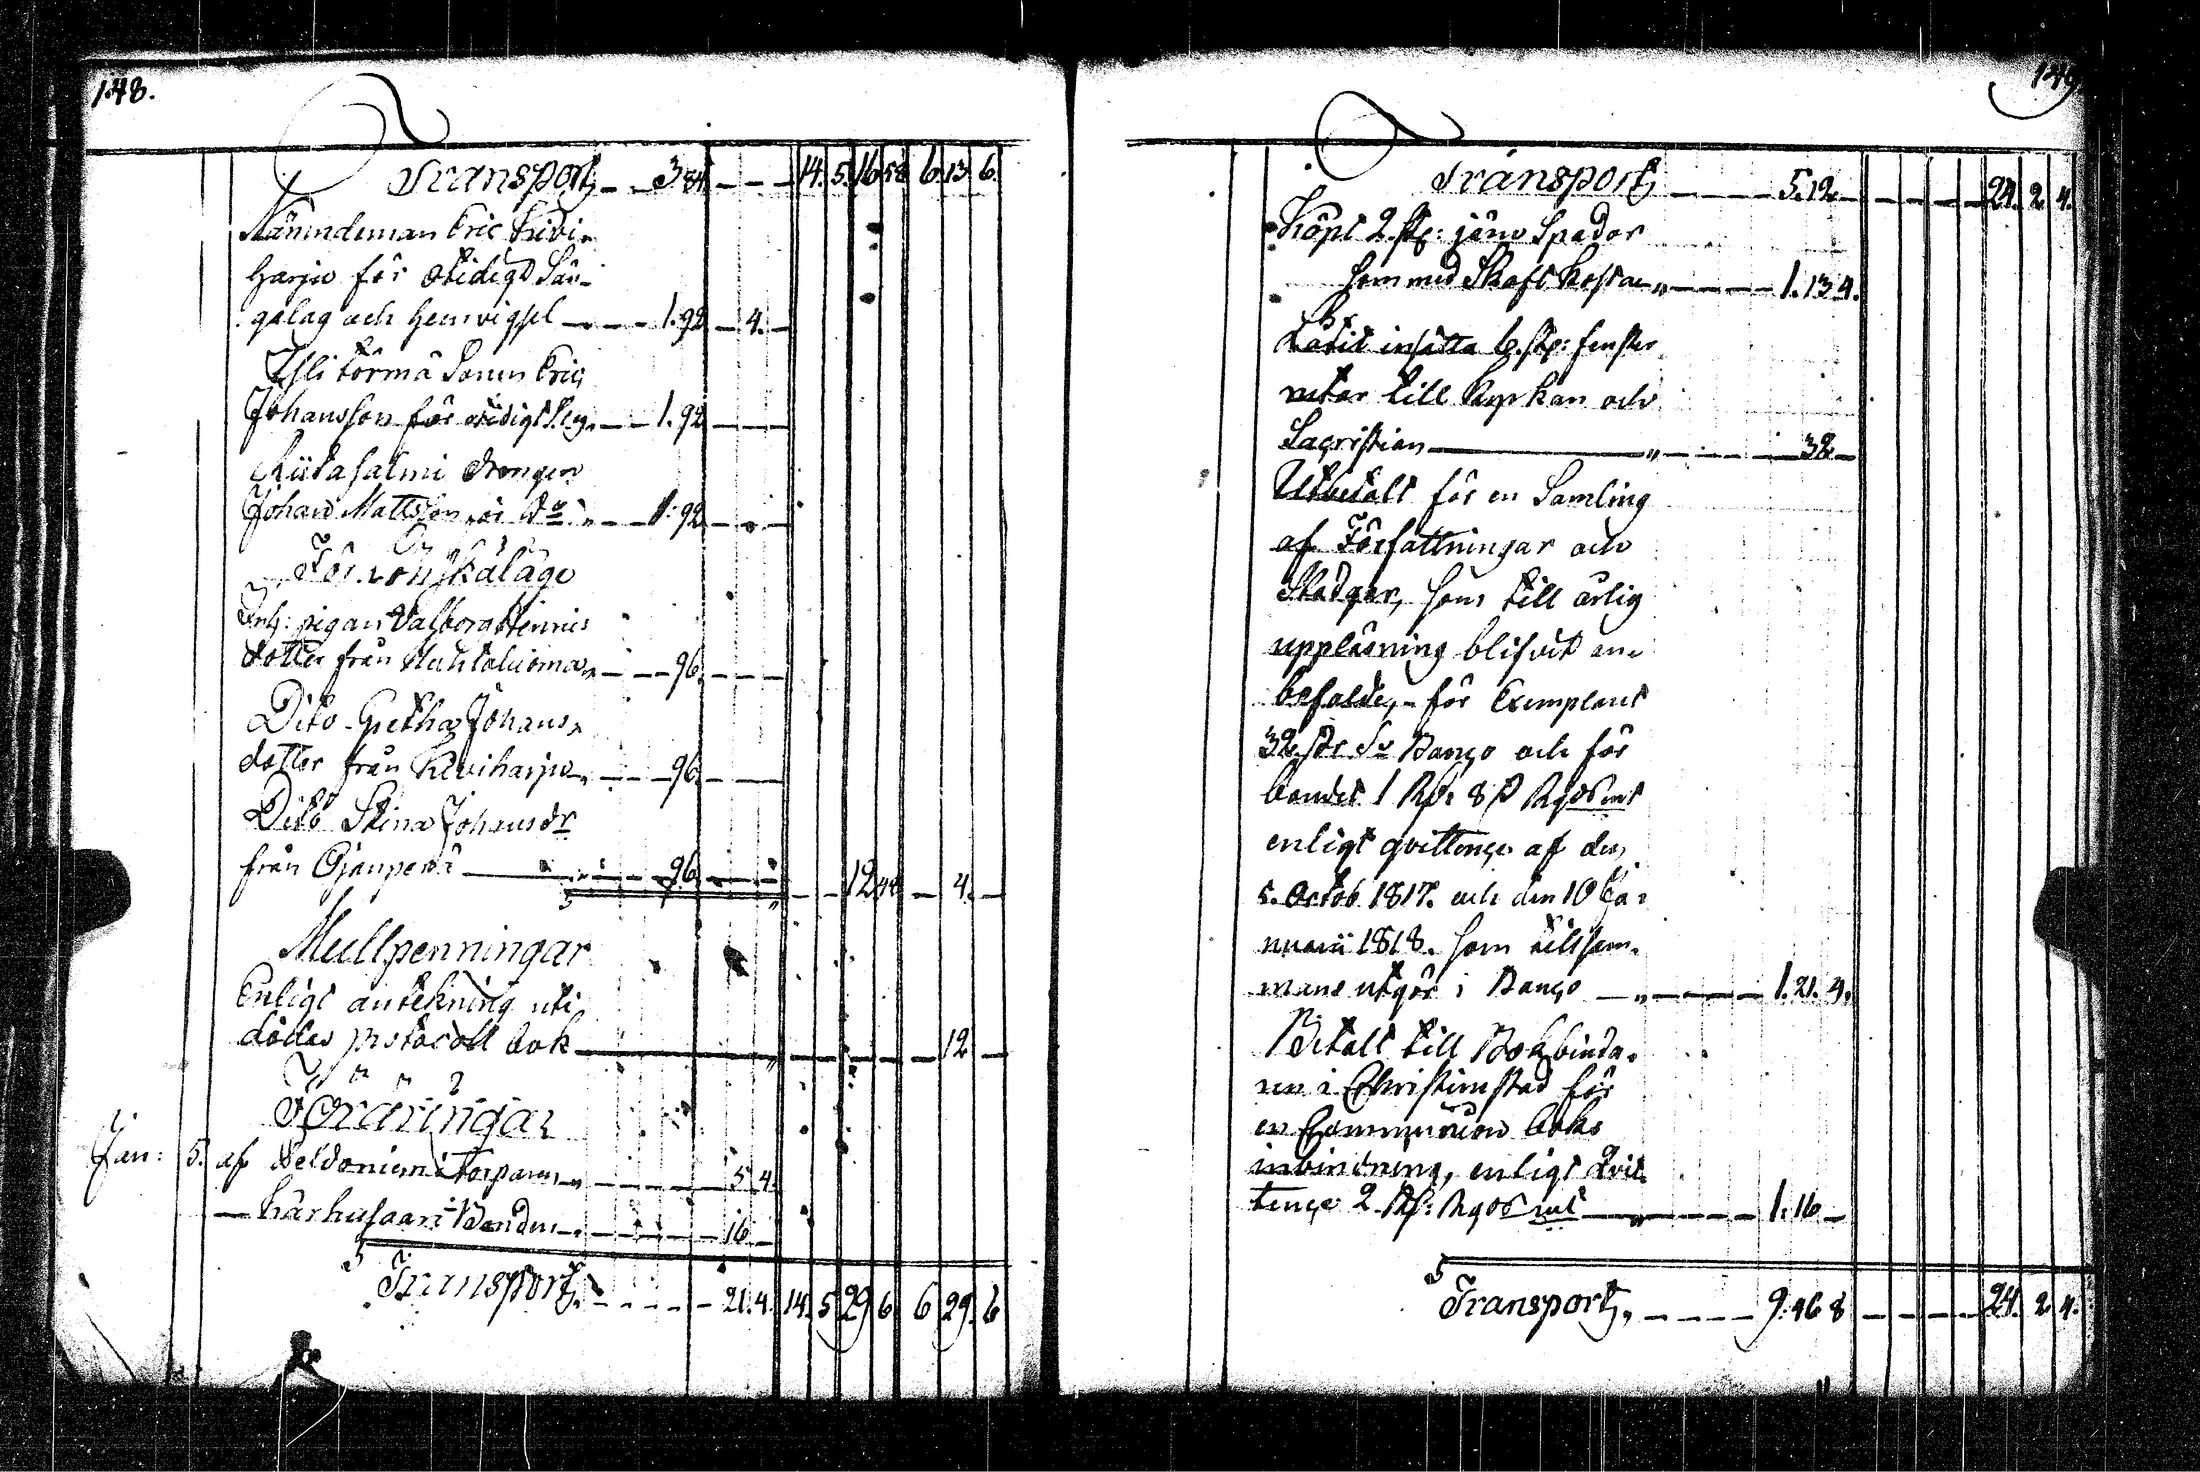 148.
Transport, 3.84. 14. 5. 16 58 6. 13. 6.
Nämndeman Eric Kivi-
harju för otidigt Sän-
galag och hemvigsel 1.92 4.
Yli Törmä Sonen Eric
Johansson för otidigt 1.92
Riitasalmi Drengen
Johan Mattsson för Do 1.92
För Lönskaläge
Inh: pigan Valborg Hennics
dotter från 96.
Dito Gretha Johans
dotter från Kiviharju 96
Dito Stina Johansdr
från Ojanperä 96 12 48 4.
Mullpenningar
Enligt antekning uti
dödes protocoll bok 12
Föräringar
Jan: 5. af Peldoniemi Torparen 5 4.
Kärhusaari Bonden 16
Transport, 21.4. 14. 5 29 6 6 29. 6
149
Transport, 5.12 24. 2 4.
Köpt 2 st: järn Spador
som med Skaft kosta 1.13 4.
Låtit insätta 6. st: fenster
rutor till Kyrkan och
Sacristian 32
Utbetalt för en Samling
af Författningar och
Stadgar, som till årlig
uppläsning blifvit an-
befalde, för Exemplaret
32 sk Sv Banco och för
bandet 1 Rd: 8 s Rgs mt
enligt qvittence af den
5. Octob 1817. och den 10 Ja-
nuarii 1818. som tillsam-
mans utgör i Banco 1.21. 4.
Betalt till Bokbinda-
ren i Christinestad för
en Communion boks
inbindning, enligt Qvit-
tence 2 Rd: Rgs mt 1.16
Transport, 9.46 8 24. 2 4.